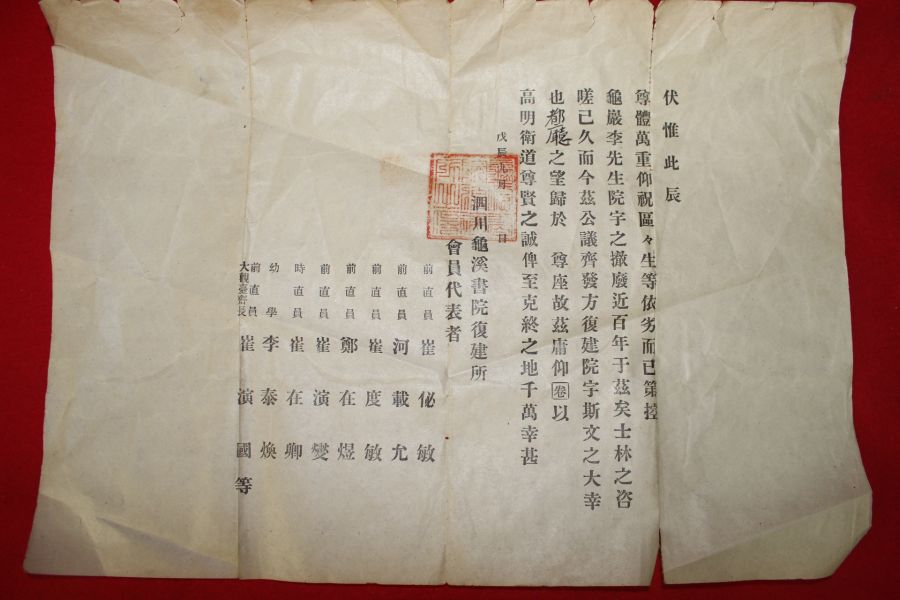 伏惟此辰
尊體萬重仰祝區々生等依劣而已第控
龜巖李先生院宇之撤廢近百年于茲矣士林之咨
嗟已久而今茲公議齊發方復建院宇斯文之大幸
也都廳之望歸於 尊座故茲庸仰卷以
高明衛道尊賢之誠俾至克終之地千萬幸甚
戊辰 月 日
泗川龜溪書院復建所
會員代表者
前直員 崔 佖敏
前直員 河 載允
前直員 崔 度敏
前直員 鄭 在煜
前直員 崔 演燮
時直員 崔 在卿
幼學 李 泰煥
前直員
大觀臺齋長 崔 演國 等